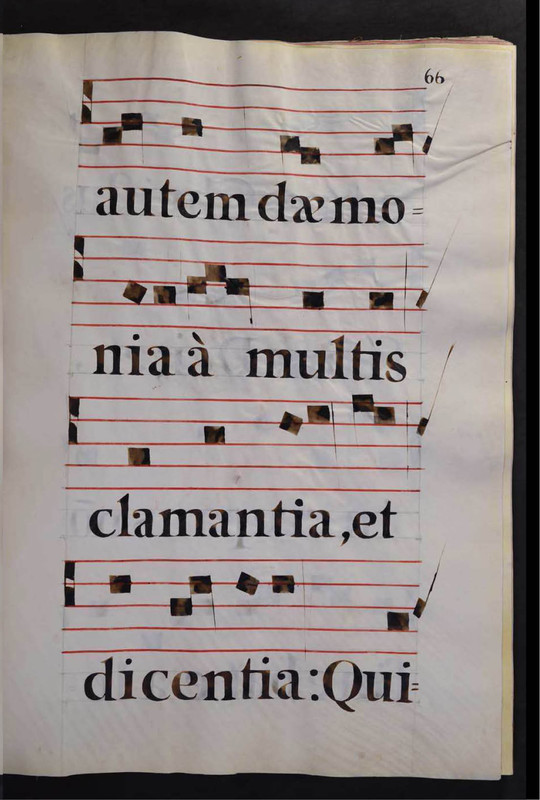 66
autem dæmo=
nia à multis
clamantia, et
dicentia: Qui=